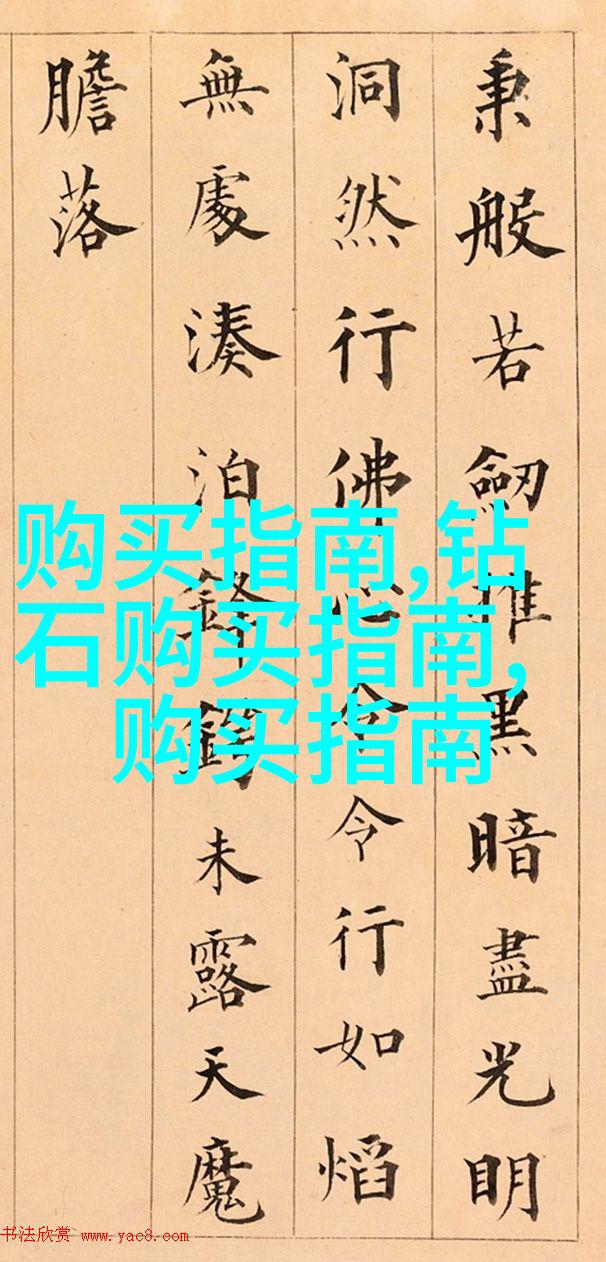 秉般若劒推黑暗盡光明
洞然行佛心令令行如熖
無處湊泊鋒鍔未露天魔
膽落
购买指南,钻
石购买指南,
购买指南
书法欣赏 www.yac8.com